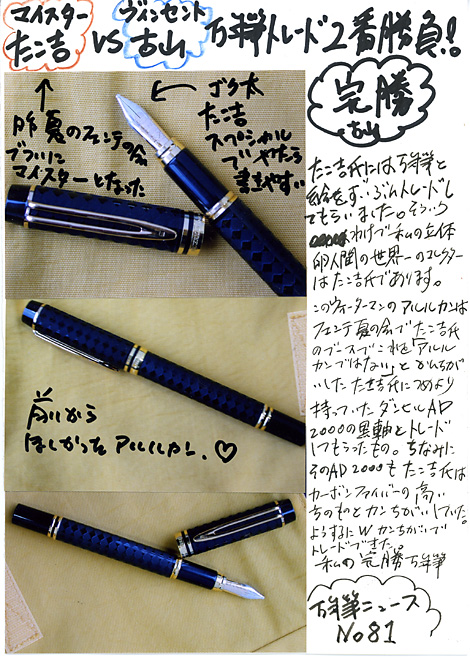 マイスター たこ吉 VS ヴィンセント 古山 万年筆トレード2番勝負!!
昨夏のフェンテの会
ブラいに
マイスターとなった
ゴク太
たこ吉
スペシャル
でやたら
書きやすい
完勝
古山
たこ吉氏には万年筆と
絵をずいぶんトレードし
てもらいました。そういう
わけで私の立体
卵人間の世界一のコレクター
はたこ吉氏であります。
このウォーターマンのアルルカンは
フェンテ夏の会でたこ吉氏
のブースでこれを「アルル
カンではない」とかんちが
いしたたこ吉氏につめより
持っていたダンヒルAD
2000の黒軸とトレード
してもらったもの。ちなみに
そのAD2000もたこ吉氏は
カーボンファイバーの高い
ちのものとカンちがいしていた。
ようするにWカンちがいで
トレードできた。
私の完勝万年筆
前から
ほしかったアルルカン。♡
万年筆ニュース
No81